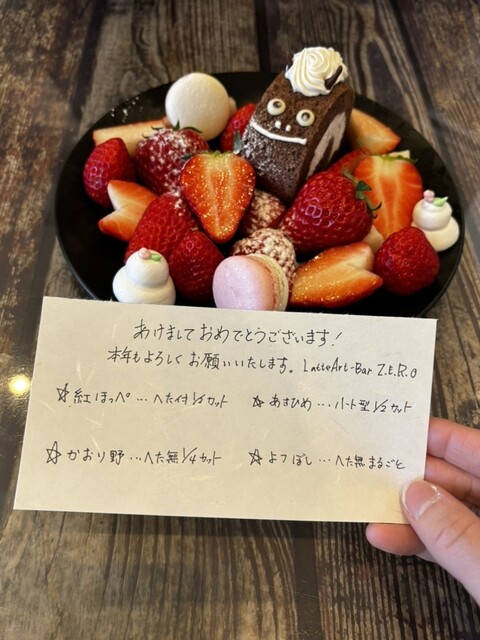 あけましておめでとうございます!
本年もよろしくお願いいたします。LatteArt-Bar Z.E.R.O
☆紅ほっぺ…へた付1/2カット ☆あきひめ…ハート型1/2カット
☆かおり野…へた無1/4カット ☆よつぼし…へた無まるごと